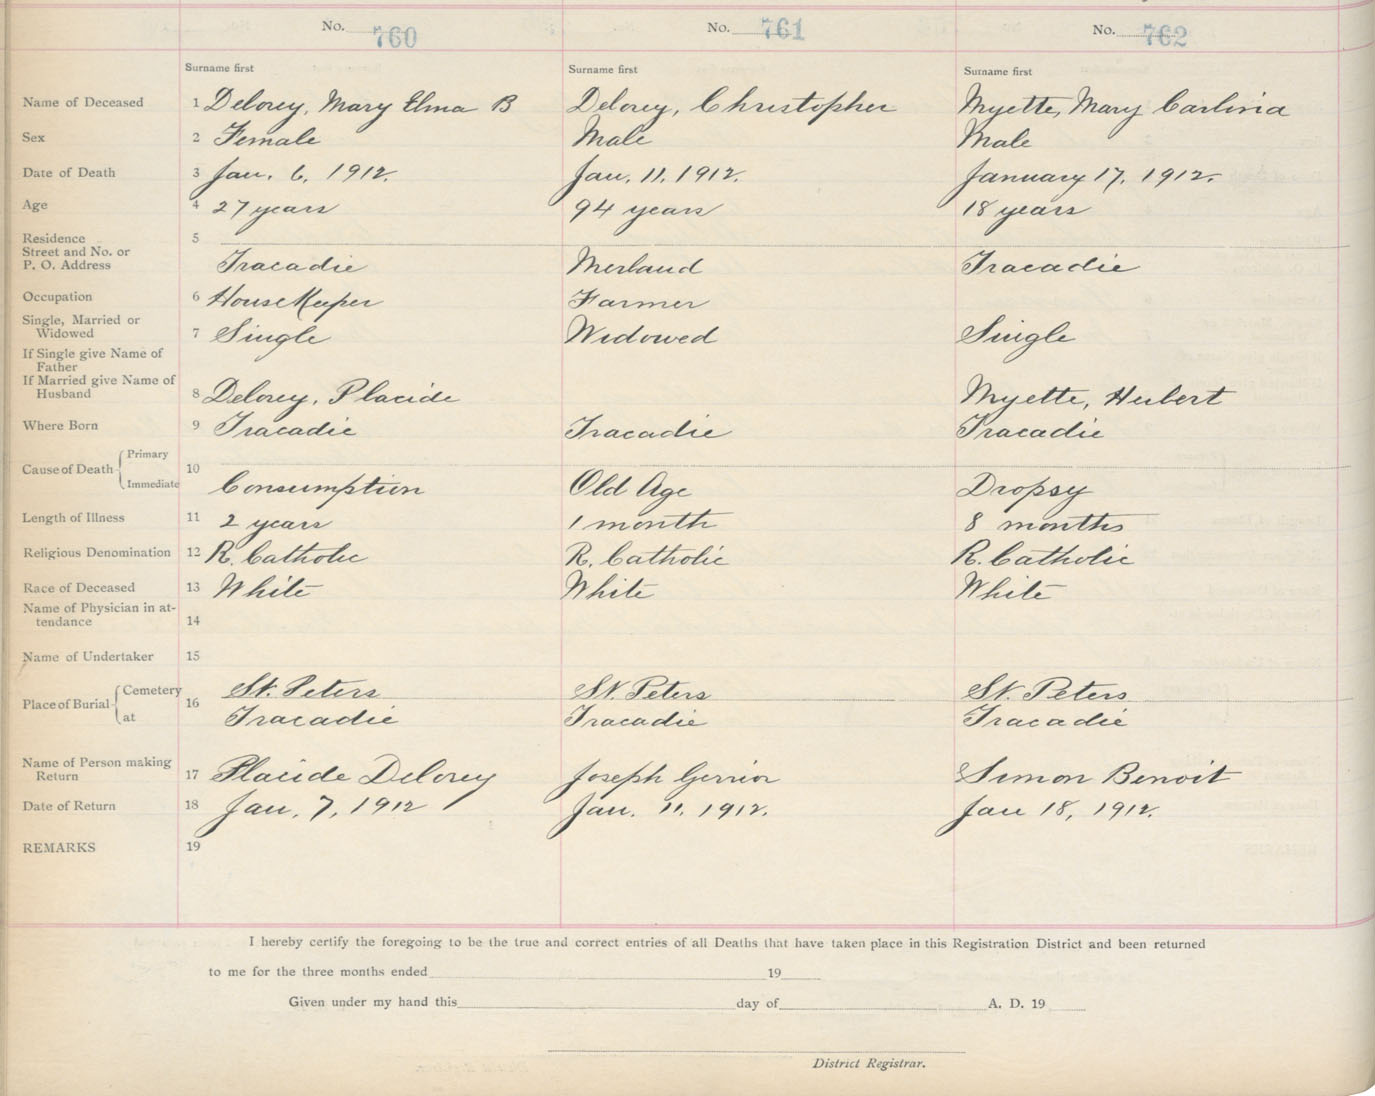 No. 760 No. 761 No. 762
Surname first Surname first Surname first
Name of Deceased 1 Delorey, Mary Elma B Delorey, Christopher Myette, Mary Carlina
Sex 2 Female Male Male
Date of Death 3 Jan. 6, 1912. Jan. 11, 1912. January 17, 1912.
Age 4 27 years 94 years 18 years
Residence 5
Street and No. or
P. O. Address Tracadie Merland Tracadie
Occupation 6 House Keeper Farmer
Single, Married or
Widowed 7 Single Widowed Single
If Single give Name of
Father
If Married give Name of
Husband 8 Delorey, Placide Myette, Hubert
Where Born 9 Tracadie Tracadie Tracadie
Cause of Death Primary 10
Immediate Consumption Old Age Dropsy
Length of Illness 11 2 years 1 month 8 months
Religious Denomination 12 R. Catholic R. Catholic R. Catholic
Race of Deceased 13 White White White
Name of Physician in at-
tendance 14
Name of Undertaker 15
Place of Burial Cemetery 16 St. Peters St. Peters St. Peters
at Tracadie Tracadie Tracadie
Name of Person making
Return 17 Placide Delorey Joseph Gerrior Simon Benoit
Date of Return 18 Jan. 7, 1912 Jan. 11, 1912. Jan 18, 1912.
REMARKS 19
I hereby certify the foregoing to be the true and correct entries of all Deaths that have taken place in this Registration District and been returned
to me for the three months ended 19
Given under my hand this day of A. D. 19
District Registrar.